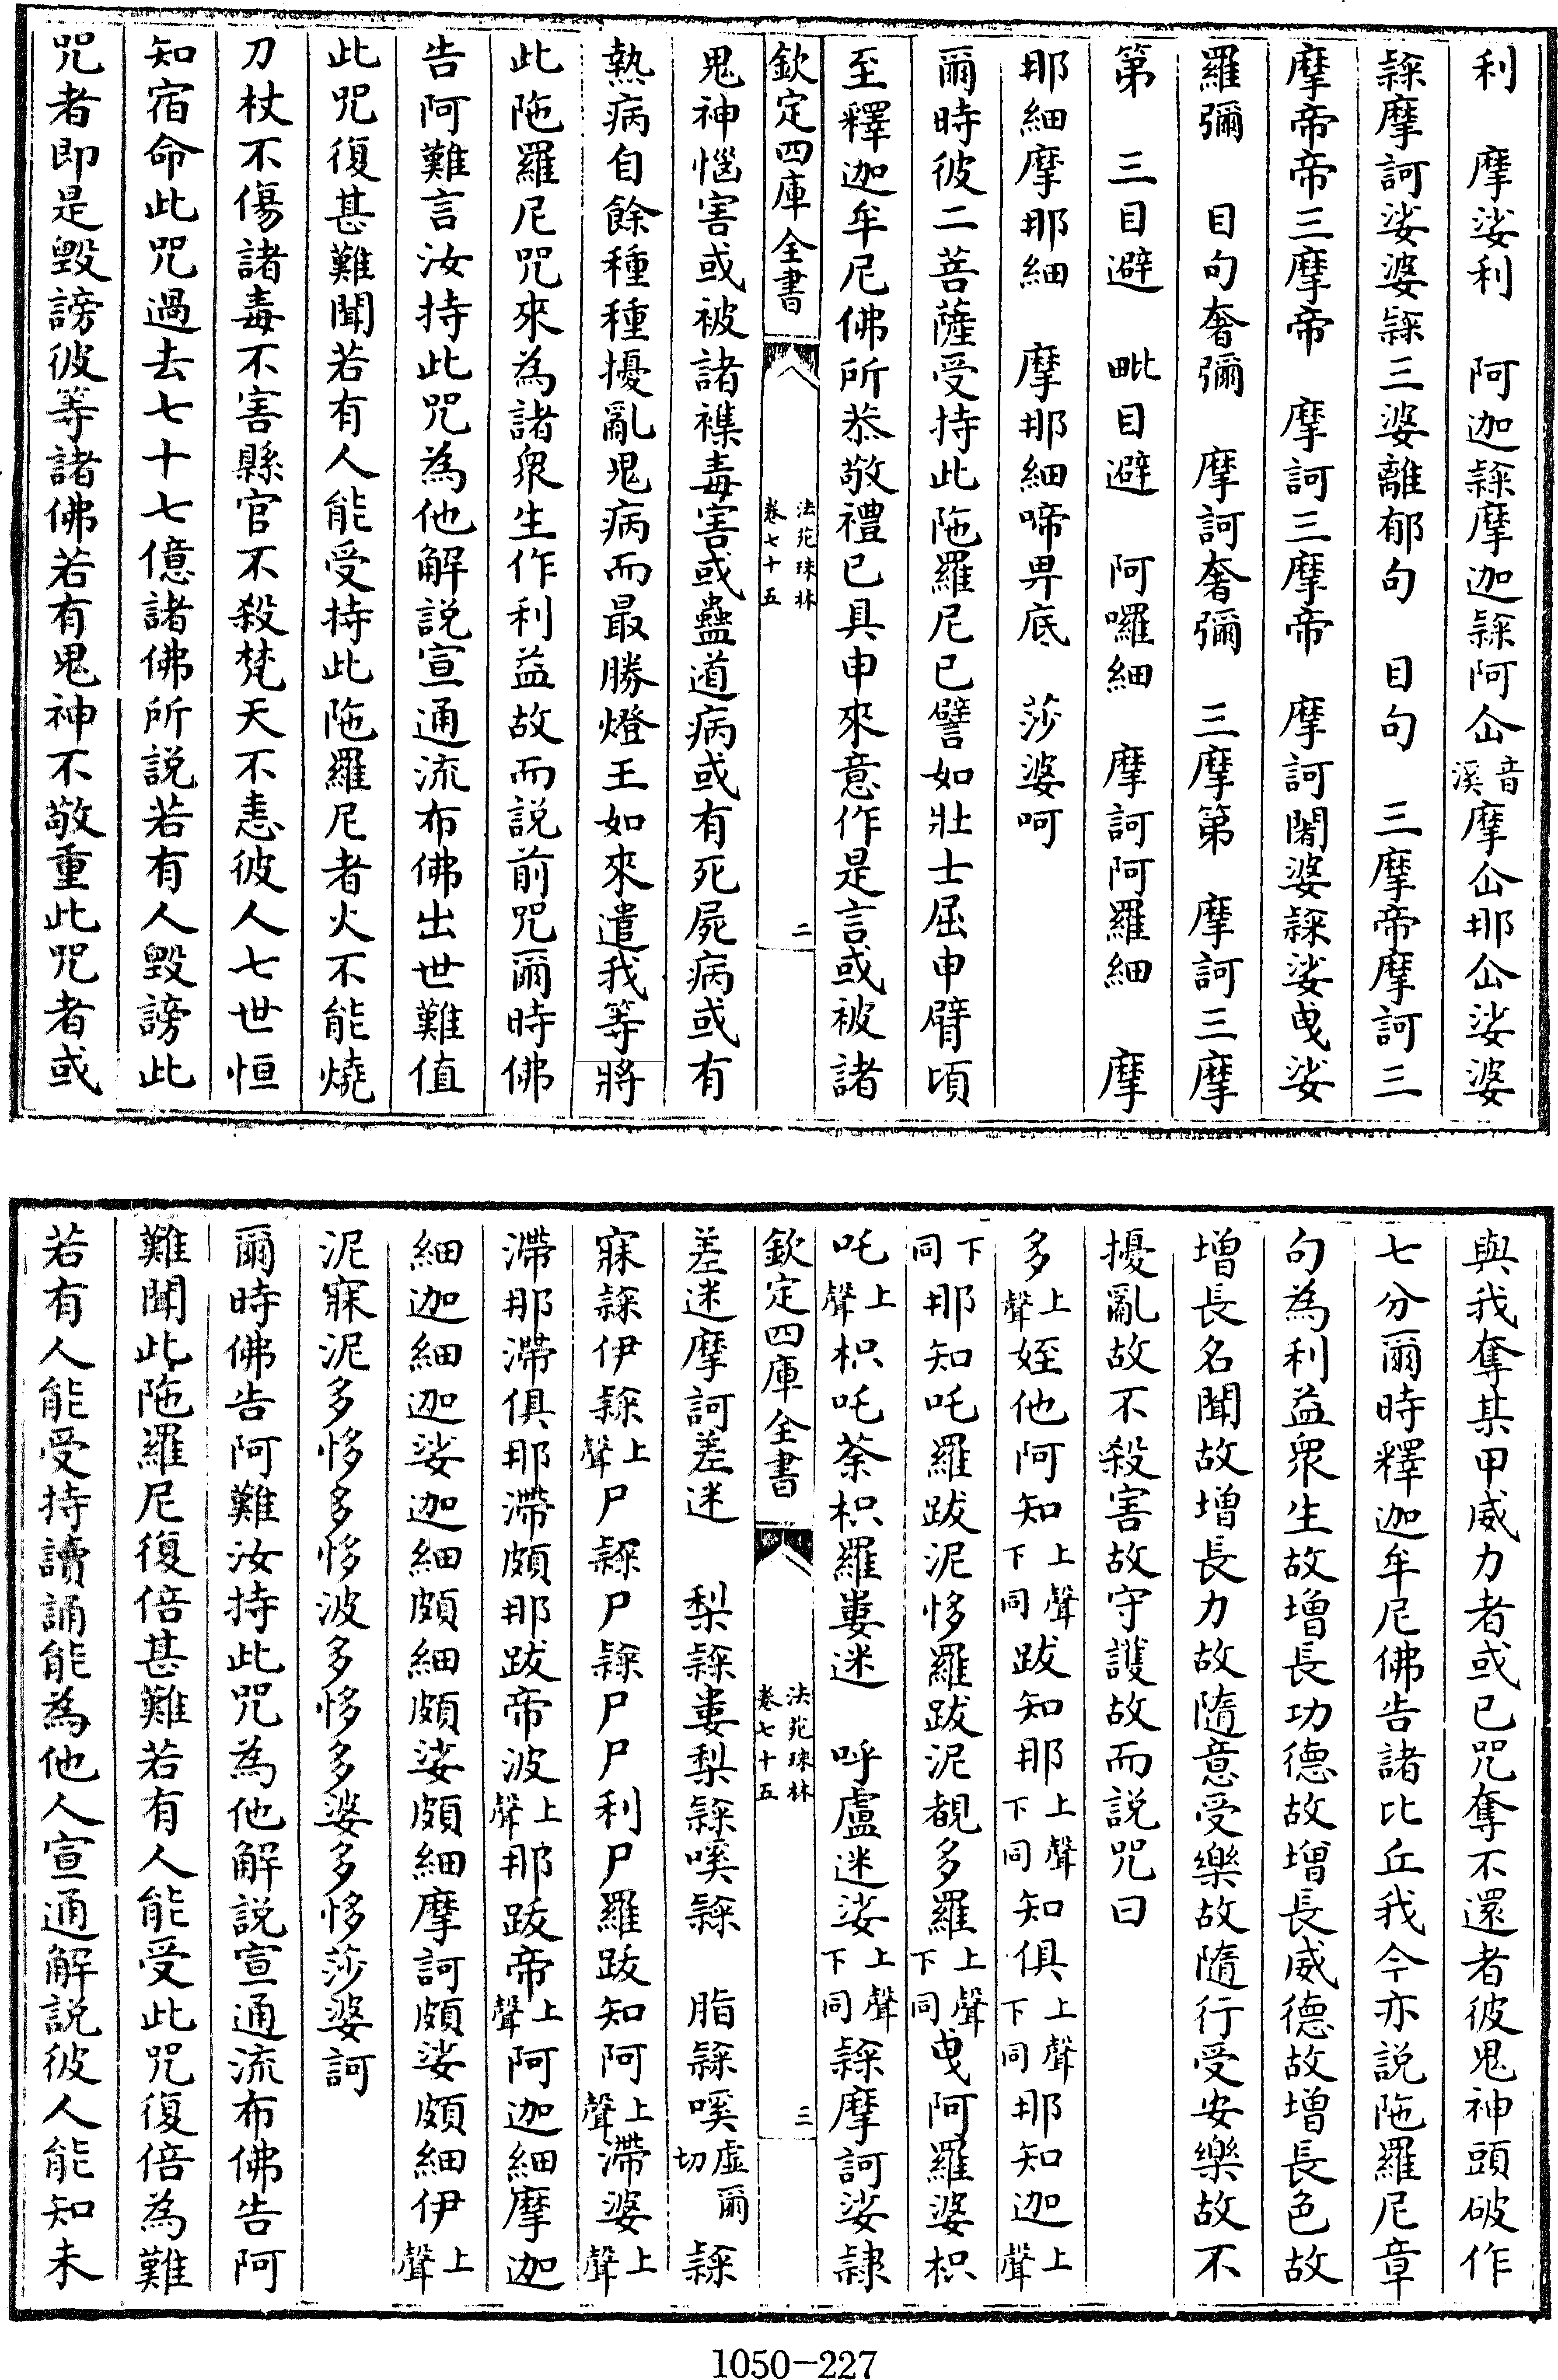 利　摩娑利　阿迦䫂摩迦䫂阿峾音溪摩峾耶峾娑婆
䫂摩訶娑婆䫂三婆離郁句　目句　三摩帝摩訶三
摩帝帝三摩帝　摩訶三摩帝　摩訶闍婆䫂娑曳娑
羅彌　目句奢彌　摩訶奢彌　三摩第　摩訶三摩
第　三目避　毗目避　阿囉細　摩訶阿羅細　摩
耶細摩耶細　摩耶細啼畀底　莎婆呵
爾時彼二菩薩受持此陁羅尼已譬如壯士屈申臂頃
至釋迦牟尼佛所恭敬禮已具申來意作是言或被諸
欽定四庫全書　法苑珠林　卷七十五　二
鬼神惱害或被諸襍毒害或蠱道病或有死屍病或有
熱病自餘種種擾亂鬼病而最勝燈王如來遣我等將
此陁羅尼咒來為諸衆生作利益故而説前咒爾時佛
告阿難言汝持此咒為他解説宣通流布佛出世難值
此咒復甚難聞若有人能受持此陁羅尼者火不能燒
刀杖不傷諸毒不害縣官不殺梵天不恚彼人七世恒
知宿命此咒過去七十七億諸佛所説若有人毀謗此
咒者即是毀謗彼等諸佛若有鬼神不敬重此咒者或
與我奪某甲威力者或已咒奪不還者彼鬼神頭破作
七分爾時釋迦牟尼佛告諸比丘我今亦説陁羅尼章
句為利益衆生故增長功德故增長威德故增長色故
增長名聞故增長力故隨意受樂故隨行受安樂故不
擾亂故不殺害故守護故而説咒曰
多上聲姪他阿知上聲下同跋知那上聲下同知俱上聲下同耶知迦上聲
下同耶知吒羅跋泥侈羅跋泥覩多羅上聲下同曳阿羅婆枳
吒上聲枳吒荼枳羅婁迷　呼盧迷娑上聲下同䫂摩訶娑隷
欽定四庫全書　法苑珠林　卷七十五　三
差迷摩訶差迷　梨䫂婁梨䫂嘆䫂　脂䫂嘆虛爾切　䫂
寐䫂伊䫂上聲尸䫂尸䫂尸尸利尸羅跋知阿上聲滯婆上聲
滯耶滯俱耶滯頗耶跋帝波上聲那跋帝上聲阿迦細摩迦
細迦細迦娑迦細頗細頗娑頗細摩訶頗娑頗細伊上聲
泥寐泥多侈多侈波多侈多婆多侈莎婆訶
爾時佛告阿難汝持此咒為他解説宣通流布佛告阿
難聞此陁羅尼復倍甚難若有人能受此咒復倍為難
若有人能受持讀誦能為他人宣通解説彼人能知未
1050-227